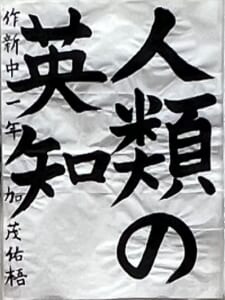 人類の
英知
作新中一年 加茂佑梧